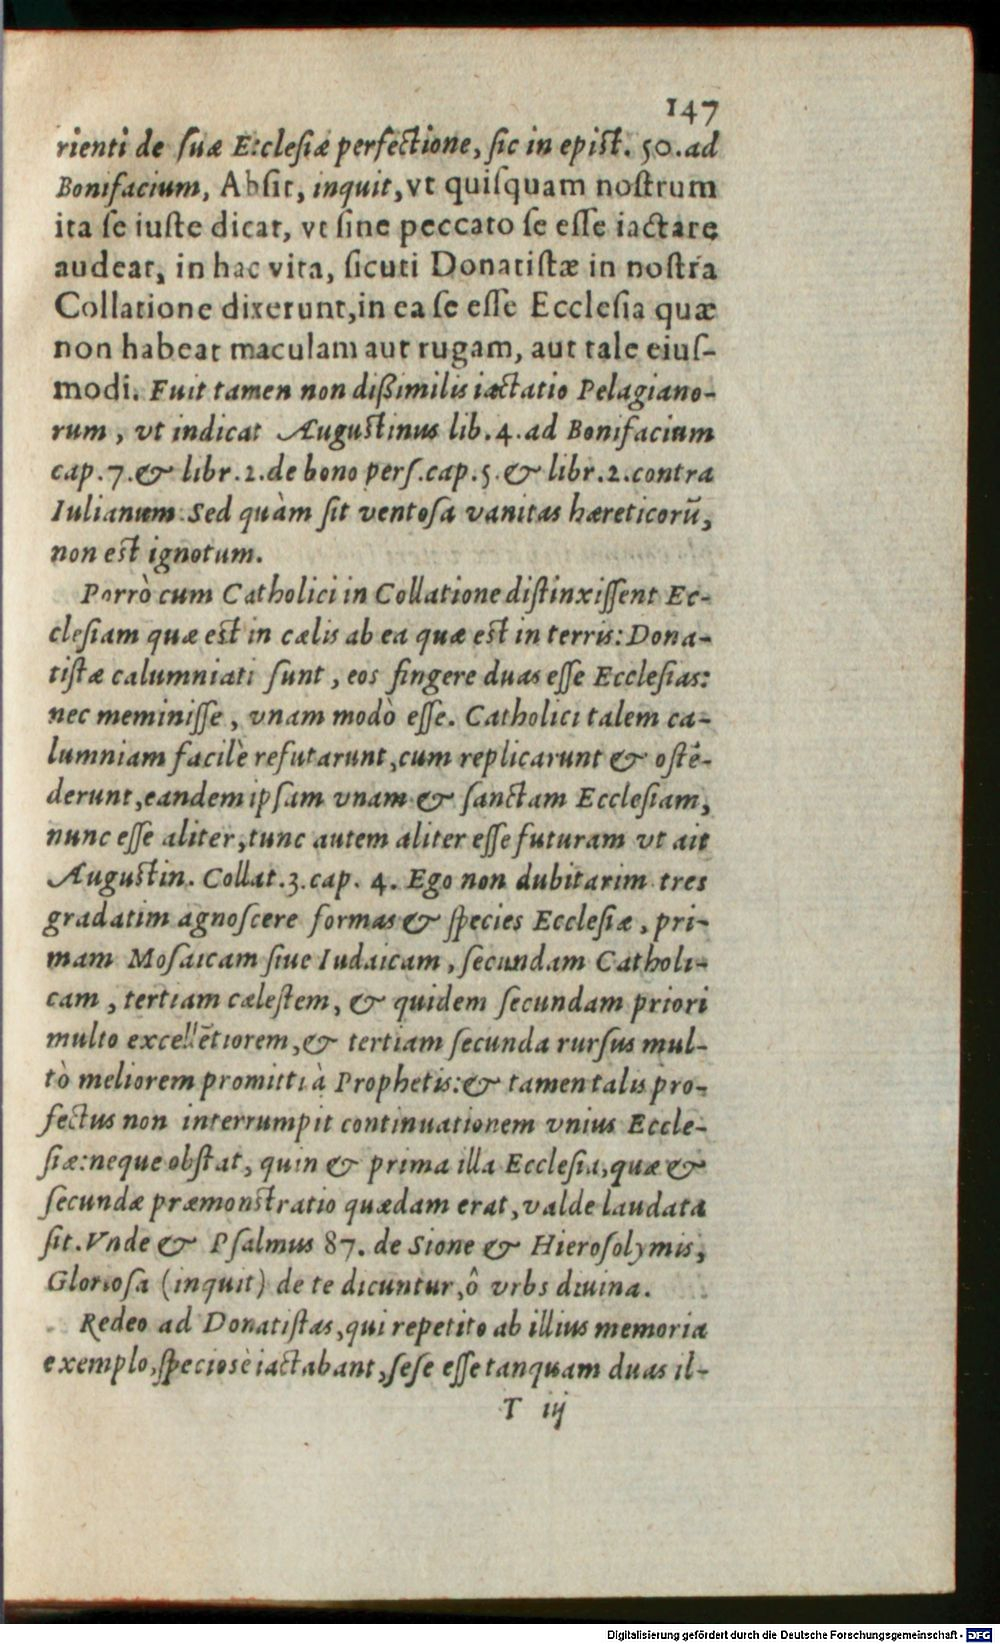 147
rienti de suæ Ecclesiæ perfectione, sic in epist. 50. ad
Bonifacium, Absit, inquit, vt quisquam nostrum
ita se iuste dicat, vt sine peccato se esse iactare
audeat, in hac vita, sicuti Donatistæ in nostra
Collatione dixerunt, in ea se esse Ecclesia quæ
non habeat maculam aut rugam, aut tale eius-
modi. Fuit tamen non dißimilis iactatio Pelagiano-
rum, vt indicat Augustinus lib. 4. ad Bonifacium
cap. 7. & libr. 2. de bono pers. cap. 5. & libr. 2. contra
Iulianum. Sed quàm sit ventosa vanitas hæreticorū,
non est ignotum.
Porrò cum Catholici in Collatione distinxissent Ec-
clesiam quæ est in cælis ab ea quæ est in terris: Dona-
tistæ calumniati sunt, eos fingere duas esse Ecclesias:
nec meminisse, vnam modò esse. Catholici talem ca-
lumniam facilè refutarunt, cum replicarunt & ostē-
derunt, eandem ipsam vnam & sanctam Ecclesiam,
nunc esse aliter, tunc autem aliter esse futuram vt ait
Augustin. Collat. 3. cap. 4. Ego non dubitarim tres
gradatim agnoscere formas & species Ecclesiæ, pri-
mam Mosaicam siue Iudaicam, secundam Catholi-
cam, tertiam cælestem, & quidem secundam priori
multo excellētiorem, & tertiam secunda rursus mul-
tò meliorem promitti à Prophetis: & tamen talis pro-
fectus non interrumpit continuationem vnius Eccle-
siæ: neque obstat, quin & prima illa Ecclesia, quæ &
secundæ præmonstratio quædam erat, valde laudata
sit. Vnde & Psalmus 87. de Sione & Hierosolymis,
Gloriosa (inquit) de te dicuntur, ô vrbs diuina.
Redeo ad Donatistas, qui repetito ab illius memoria
exemplo, speciosè iactabant, sese esse tanquam duas il-
T iij
Digitalisierung gefördert durch die Deutsche Forschungsgemeinschaft - DFG